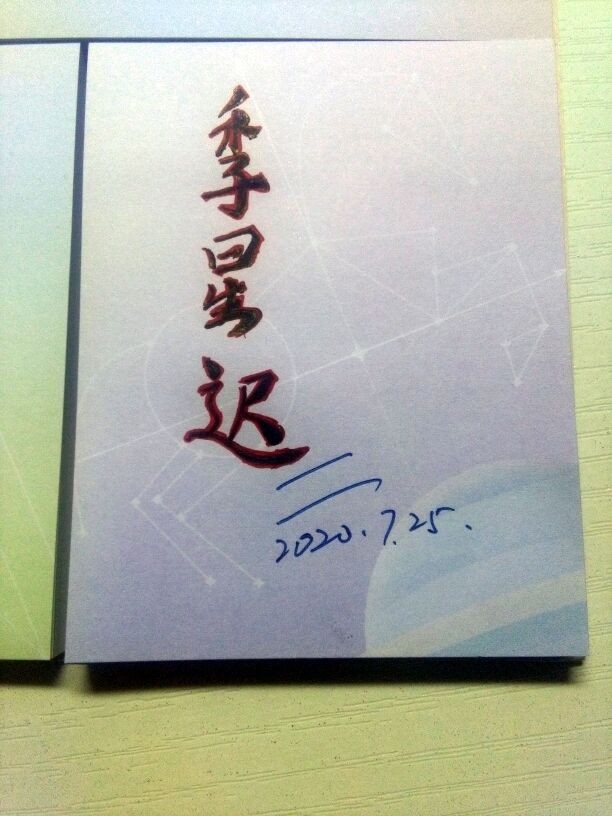 季星迟
2020.7.25.